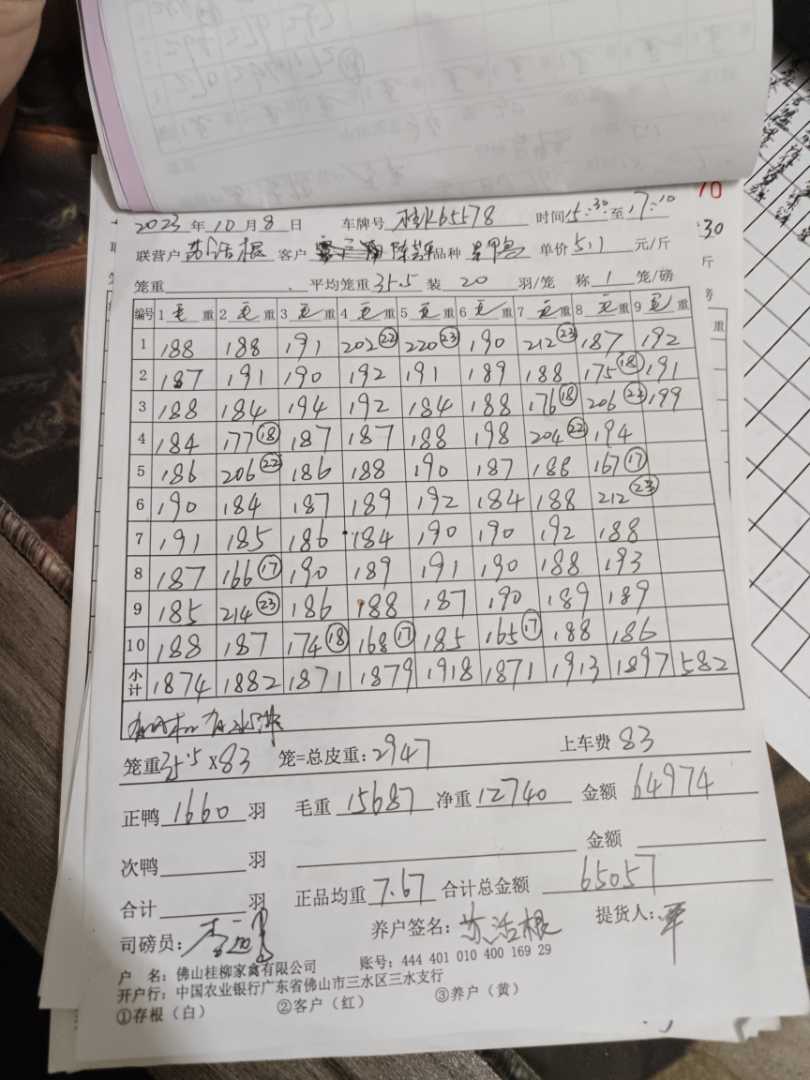 2023 年 10 月 8 日 车牌号 桂K65578 时间 15:30 至 17:10
联营户 苏活根 客户 品种 单价 5.1 元/斤
笼重 平均笼重 35.5 装 20 羽/笼 称 1 笼/磅
编号 1 毛 重 2 毛 重 3 毛 重 4 毛 重 5 毛 重 6 毛 重 7 毛 重 8 毛 重 9 毛 重
1 188 188 191 202 22 220 23 190 212 23 187 192
2 187 191 190 192 191 189 188 175 18 191
3 188 184 194 192 184 188 176 18 206 22 199
4 184 177 18 187 187 188 198 204 22 194
5 186 206 22 186 188 190 187 188 167 17
6 190 184 187 189 192 184 188 212 23
7 191 185 186 184 190 190 192 188
8 187 166 17 190 189 191 190 188 193
9 185 214 23 186 188 187 190 189 189
10 188 187 174 18 168 17 185 165 17 188 186
小计 1874 1882 1871 1879 1918 1871 1913 1897 582
笼重 35.5 x 83 笼=总皮重: 2947 上车费 83
正鸭 1660 羽 毛重 15687 净重 12740 金额 64974
次鸭 羽 金额
合计 羽 正品均重 7.67 合计总金额 65057
司磅员: 养户签名: 苏活根 提货人:
户 名: 佛山桂柳家禽有限公司 账号: 444 401 010 400 169 29
开户行: 中国农业银行广东省佛山市三水区三水支行
①存根（白） ②客户（红） ③养户（黄）
70
:30
斤
磅
重